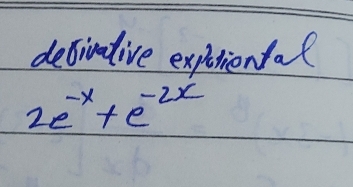 derivative expotiontal
2e^{-x} + e^{-2x}